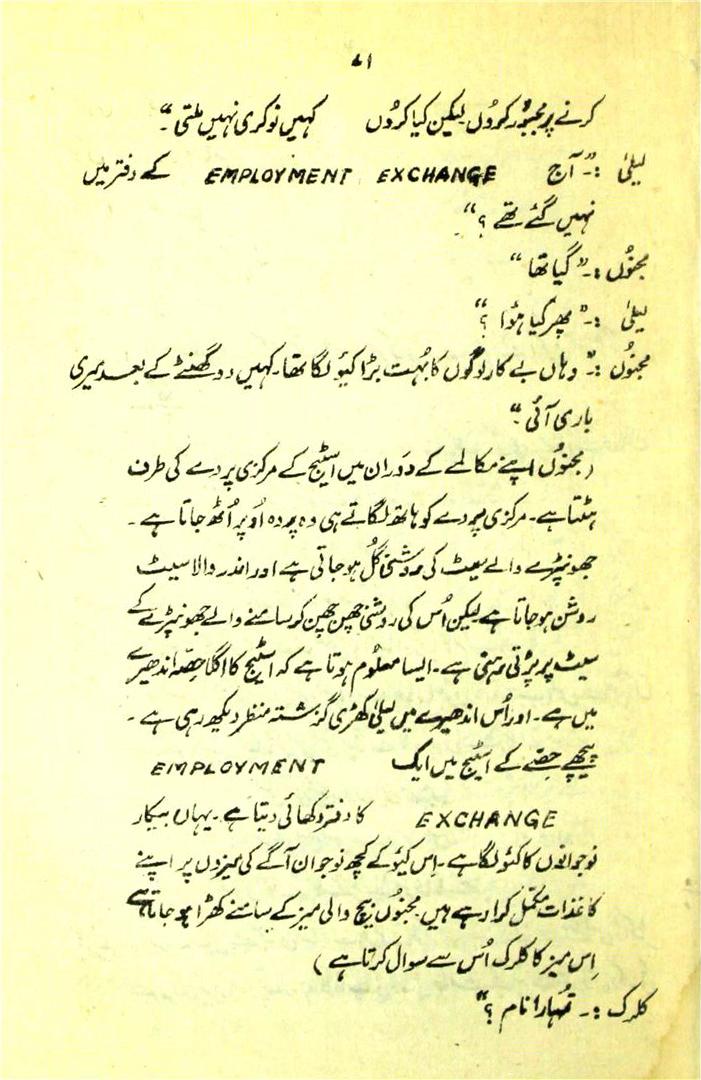 ۷۱
کرنے پر مجبُور کرُدوں لیکن کیا کرُوں کہیں نوکری نہیں ملتی۔“
لیلیٰ :۔ ”آج EMPLOYMENT EXCHANGE کے دفتر میں
نہیں گئے تھے ؟“
مجنوُں :۔ ”گیا تھا“
لیلیٰ :۔ ”پھر کیا ہوُا ؟“
مجنوُں :۔ ”وہاں بے کار لوگوں کا بہُت بڑا کیوُ لگا تھا۔ کہیں دو گھنٹے کے بعد میری
باری آئی“
(مجنوُں اپنے مکالمے کے دَوران میں اسٹیج کے مرکزی پردے کی طرف
ہٹتا ہے۔ مرکزی پردے کو ہاتھ لگاتے ہی وہ پردہ اوُپر اُٹھ جاتا ہے۔
جھونپڑے والے سیٹ کی روشنی گُل ہو جاتی ہے اور اندر والا سیٹ
روشن ہو جاتا ہے لیکن اُس کی روشنی چھن چھن کر سامنے والے جھونپڑے کے
سیٹ پر پڑتی رہتی ہے۔ ایسا معلوُم ہوتا ہے کہ اسٹیج کا اگلا حِصّہ اندھیرے
میں ہے۔ اور اُس اندھیرے میں لیلیٰ کھڑی گزشتہ منظر دیکھ رہی ہے۔
پیچھے حصّے کے اسٹیج میں ایک EMPLOYMENT
EXCHANGE کا دفتر دکھائی دیتا ہے۔ یہاں بیکار
نوجوانوں کا کیوُ لگا ہے۔ اِس کیوُ کے کچھ نوجوان آگے کی میزوں پر اپنے
کاغذات مکمّل کرا رہے ہیں۔ مجنوُں بیچ والی میز کے سامنے کھڑا ہو جاتا ہے
اِس میز کا کلرک اُس سے سوال کرتا ہے)
کلرک :۔ تمُہارا نام ؟“